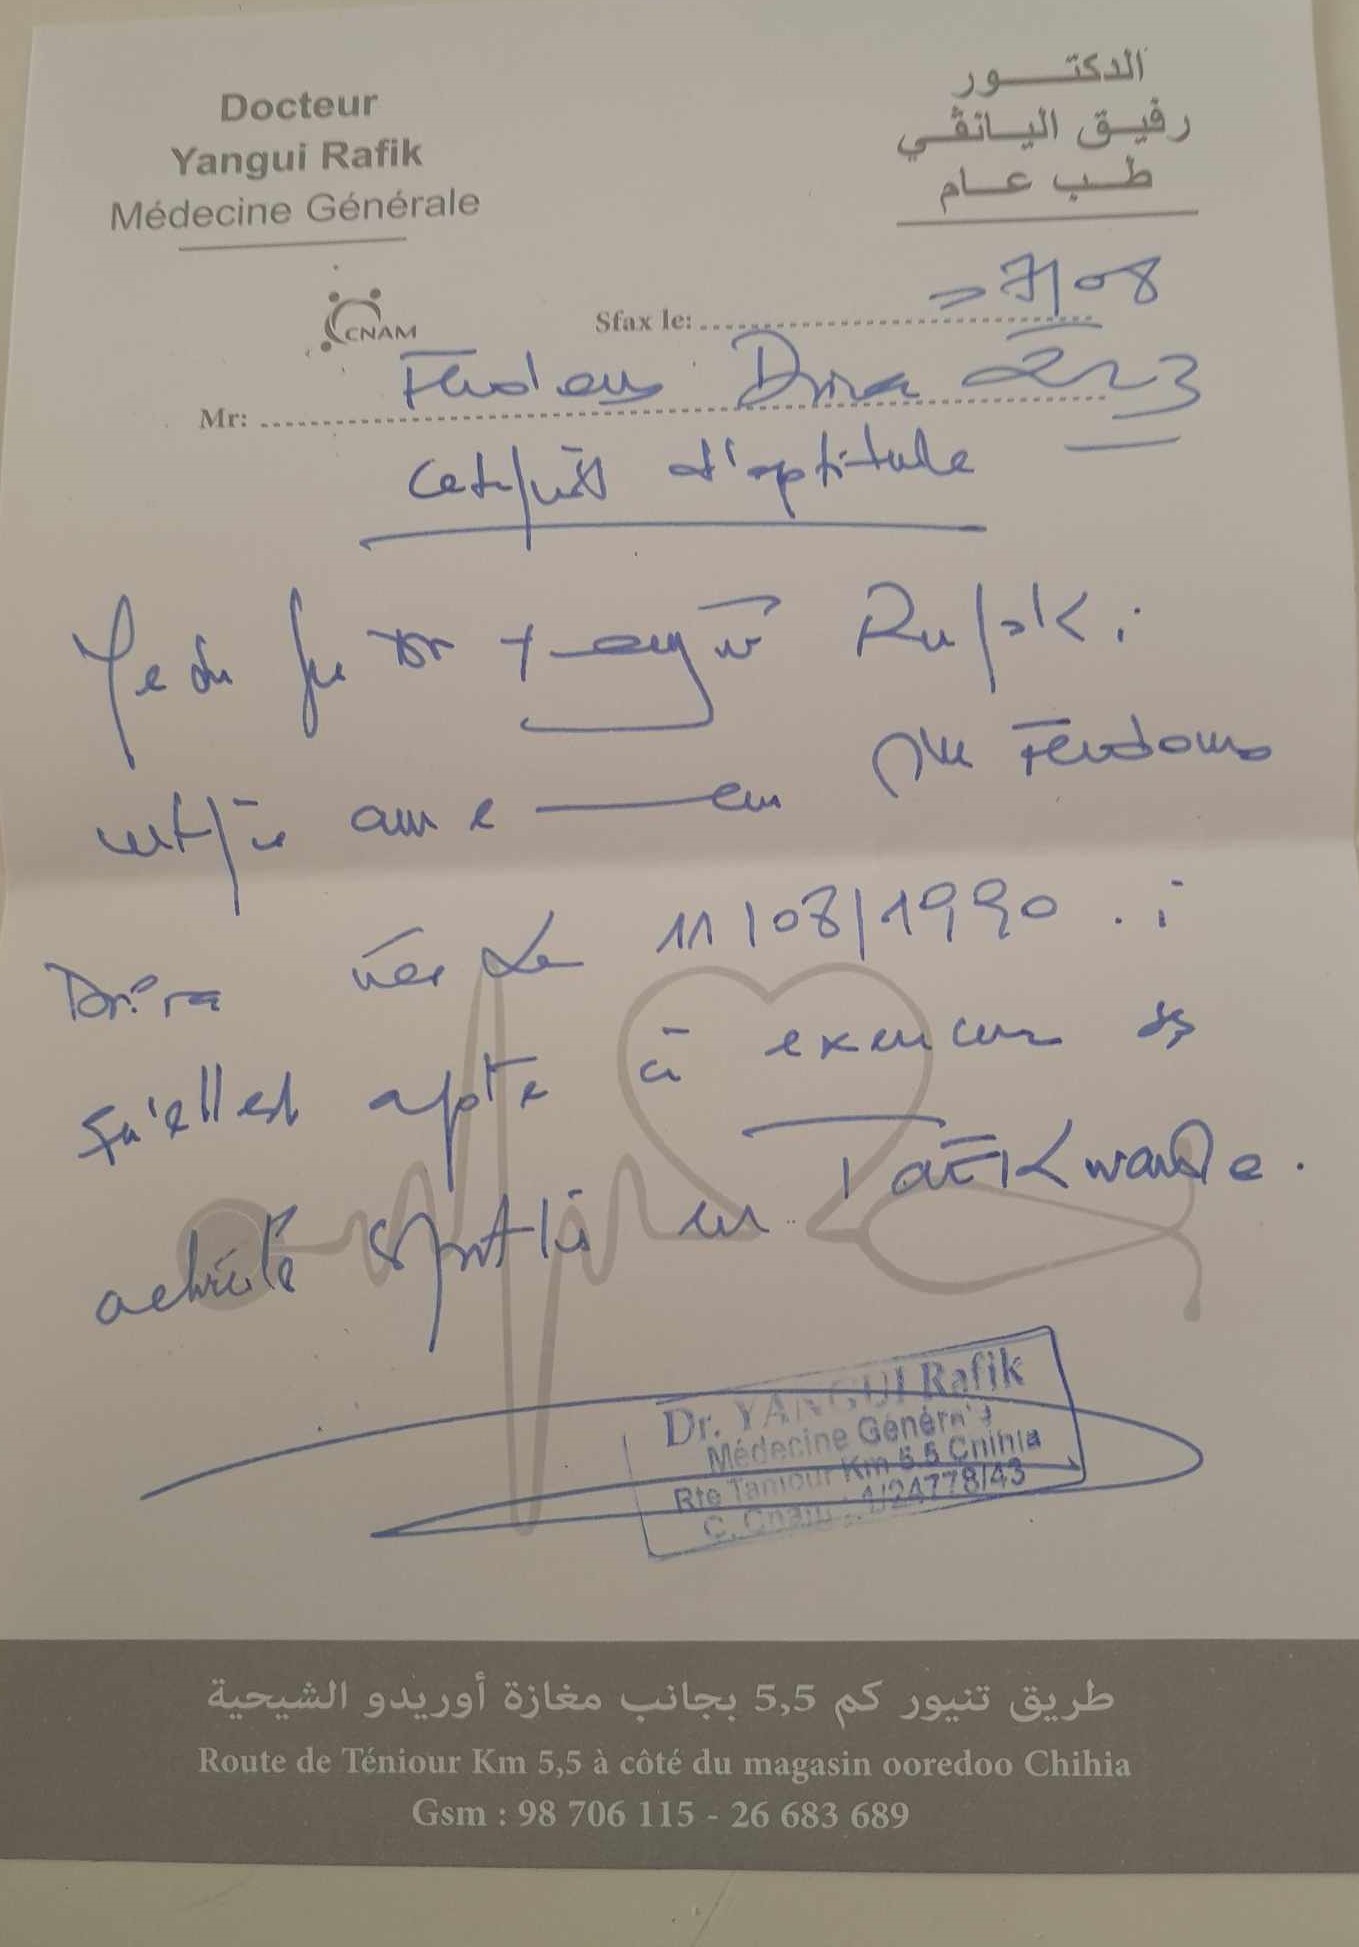 Docteur
Yangui Rafik
Médecine Générale
الدكتور
رفيق اليانڤي
طب عام
CNAM
Sfax le: 7/08
Mr: Ferdaous Drira 2023
Certificat d'aptitude
Je Dr Yangui Rafik
certifie que Ferdaous
Drira née le 11/08/1990
qu'elle est apte à exercer
activité sportive en Taekwondo.
Dr. YANGUI Rafik
Médecine Générale
Rte Taniour Km 5.5 Chihia
C. Cnam : 1/24778/43
طريق تنيور كم 5,5 بجانب مغازة أوريدو الشيحية
Route de Téniour Km 5,5 à côté du magasin ooredoo Chihia
Gsm : 98 706 115 - 26 683 689